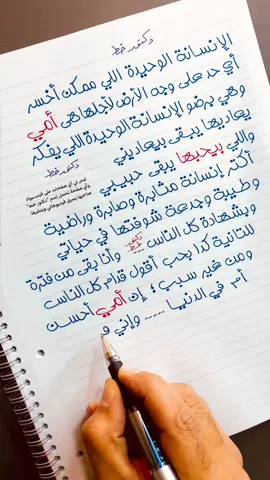 دكتور خط
الإنسانة الوحيدة اللي ممكن أخسر
أي حد على وجه الأرض لأجلها هي أمي
وهي برضو الإنسانة الوحيدة اللي بفكر
يعاديها يبقى بيعاديني
دكتور خط
واللي بيحبها يبقى حبيبي
أكتر إنسانة مثابرة وصابرة وراضية
وطيبة وجدعة شوفتها في حياتي
وبشهادة كل الناس
دكتور خط
وأنا بقى من فترة
للتانية كدا بحب أقول قدام كل الناس
ومن غير سبب ؛ إن أمي أحسن
أم في الدنيا ..... وإني ف